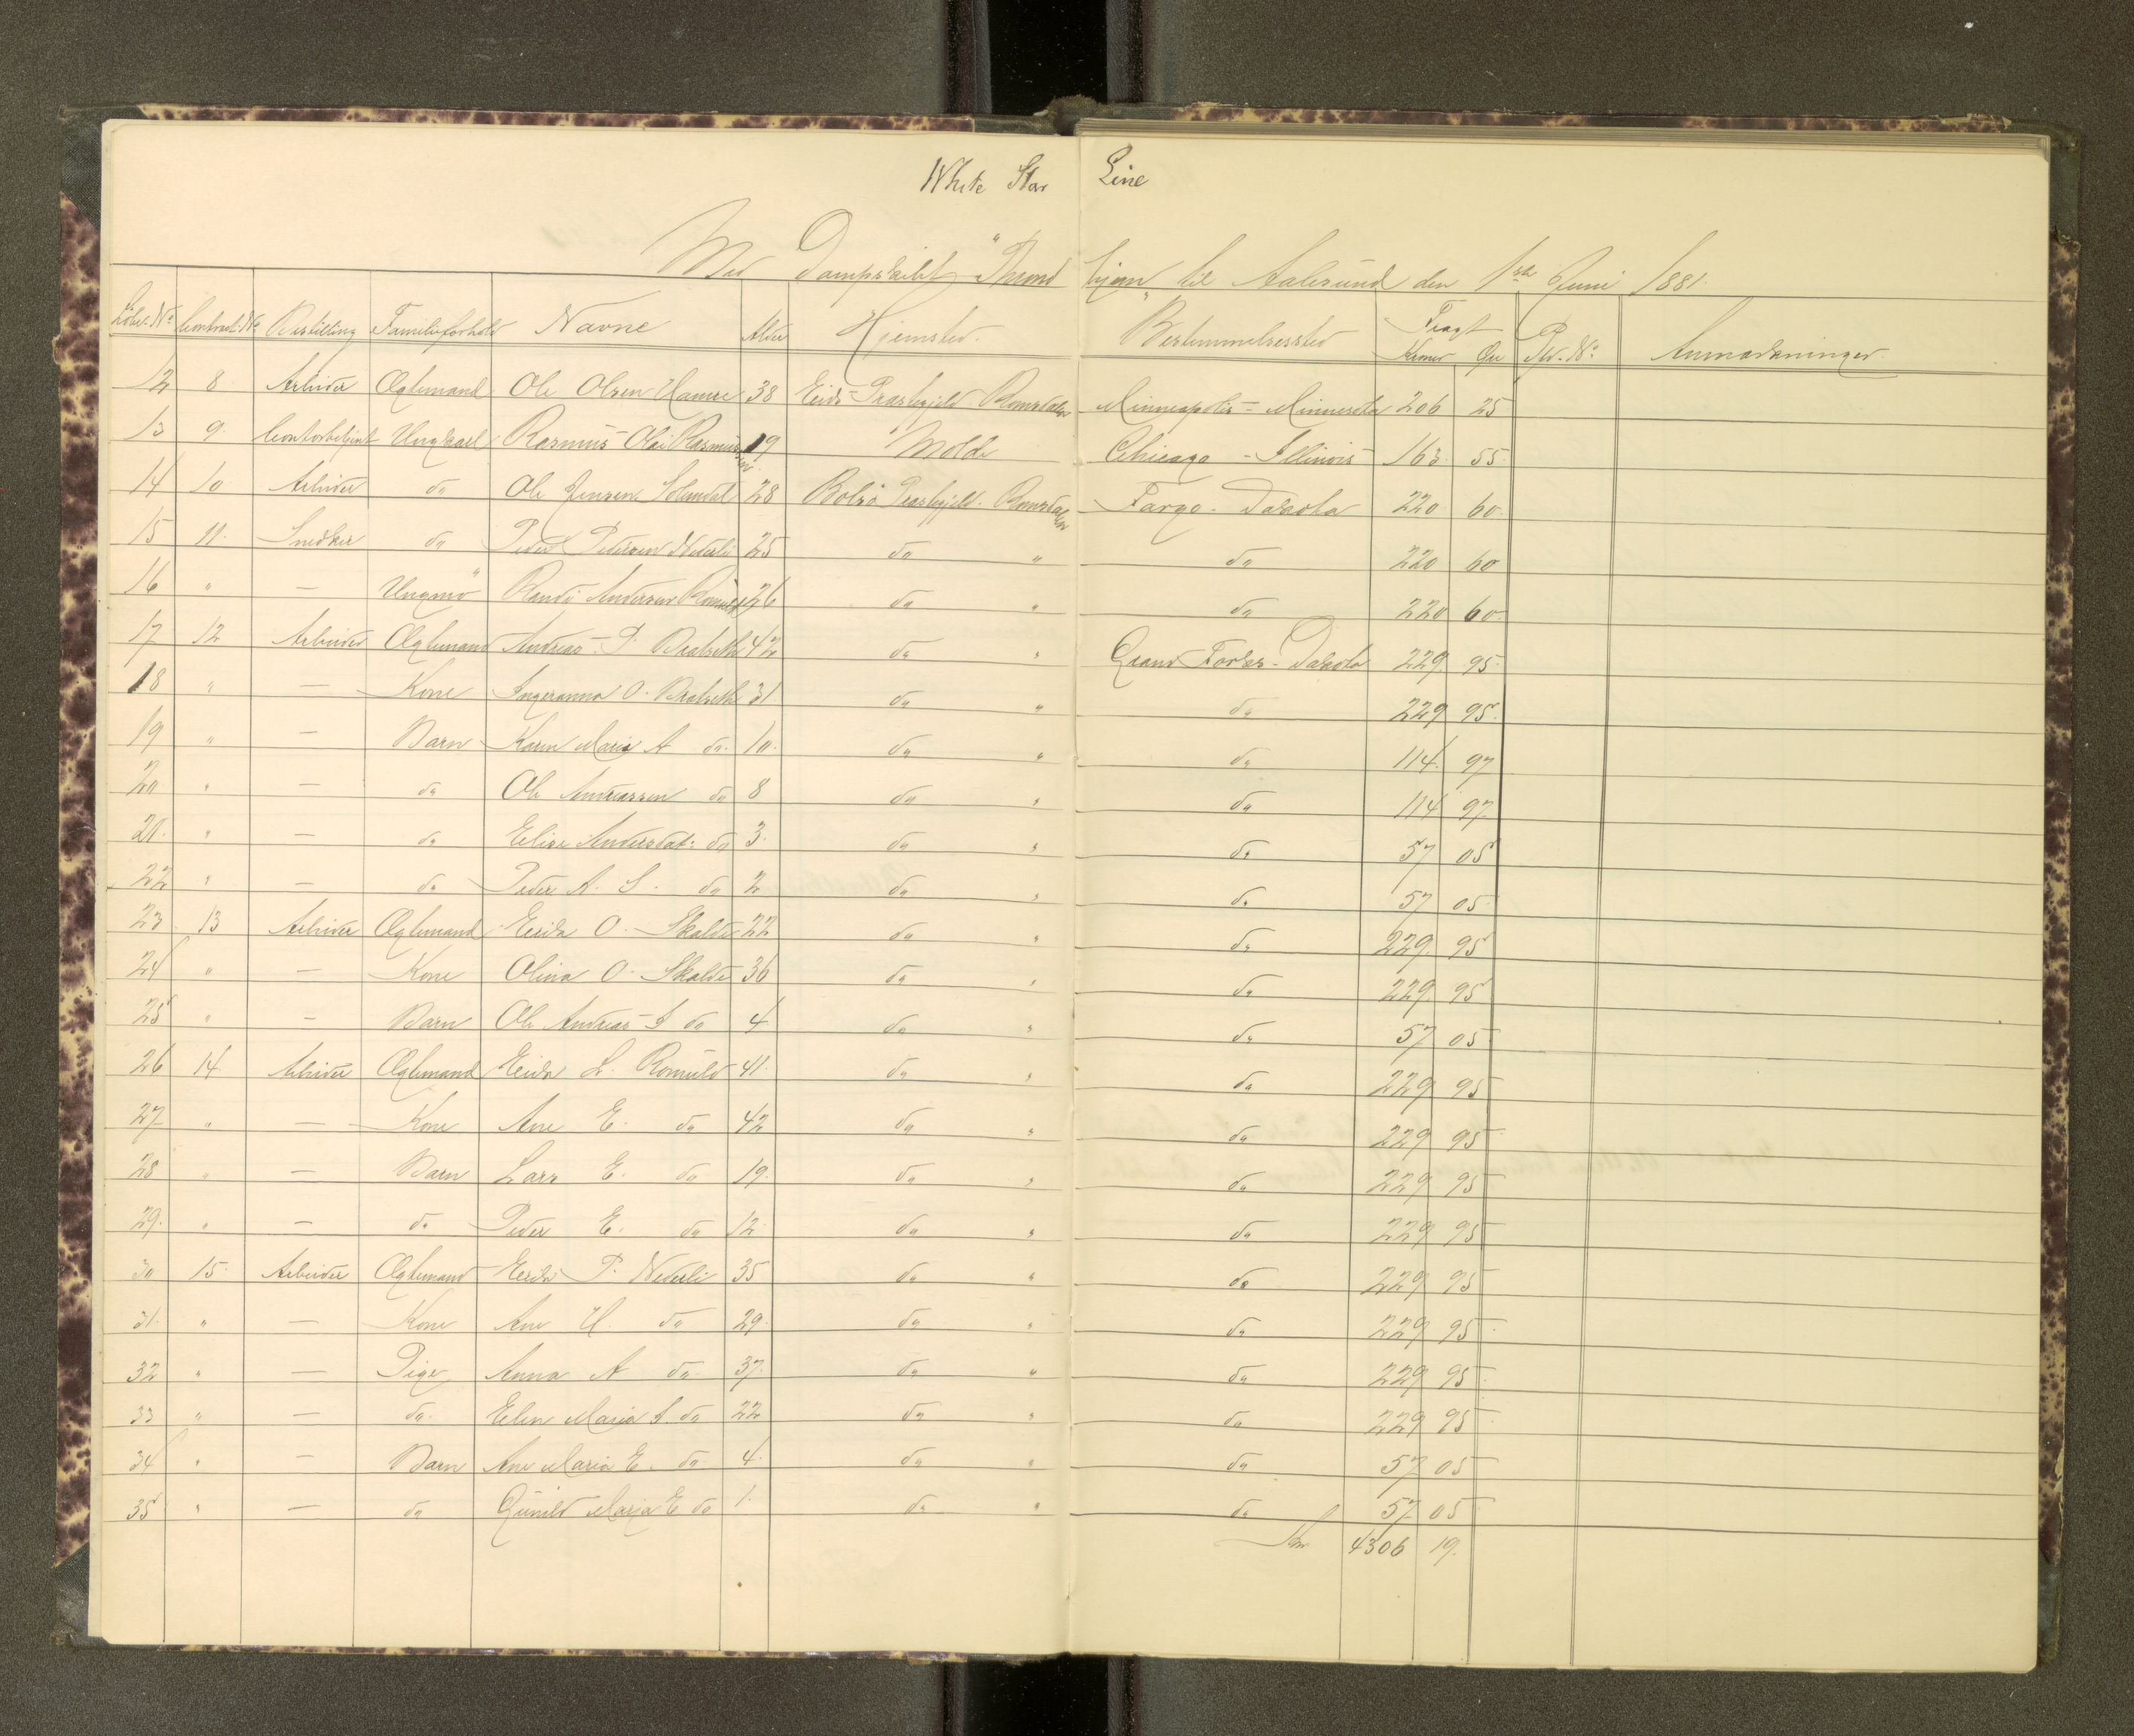 White Star Line
Med Dampskibet "Throndhjem" til Aalesund den 1ste Juni 1881.
Löbe-No Contract-No Bestilling Familieforhold Navne Alder Hjemsted. Bestemmelsessted Fragt Kroner Øre Anmærkninger.
12 8 Arbeider Ægtemand Ole Olsen Hamre 38 Eids Præstegjeld Romsdalen Minneapolis - Minnesota 206 25
13 9. Contorbetjent Ungkarl Rasmus Olai Rasmussen 19 Molde Chicago - Illinois 163. 55.
14 10. Arbeider do Ole Jensen 28 Bolsö Præstegjeld. Romsdalen Fargo. Dakota 220 60.
15 11. Snedker do Peder Petersen Nederli 25 do " do 220 60
16 " — Ungmö Randi Andersen 26 do " do 220 60.
17 12 Arbeider Ægtemand Andreas P. 42 do " Grand Forks - Dakota 229 95.
18 " — Kone Ingeranna O. 31. do " do 229 95.
19 " — Barn Karen Maria A do. 10. do " do 114. 97
20 " — do Ole Andreassen do 8 do " do 114 97
21. " — do Elise Andersdat: do 3. do " do 57 05
22 " — do Peder A. S. do 2 do " do 57 05.
23 13 Arbeider Ægtemand Erik O. Skalde 22 do " do 229. 95
24 " — Kone Olina O. Skalde 36 do " do 229. 95
25 " — Barn Ole Andreas do 4 do " do 57 05
26 14. Arbeider Ægtemand Erik L. Romuld 41. do " do 229 95
27 " — Kone Ane E. do 42 do " do 229 95
28 " — Barn Lars E. do 19. do " do 229 95
29. " — do Peder E. do 12 do " do 229 95
30 15. Arbeider Ægtemand Erik P. Nederli 35 do " do 229 95
31. " — Kone Ane H. do 29. do " do 229 95.
32 " — Pige Anna A do. 37. do " do 229 95.
33 " — do. Elen Maria do 22 do " do 229 95.
34 " — Barn Ane Maria E. do 4. do " do 57 05
35 " — do Gunild Maria E do 1. do " do 57 05.
4306 19.